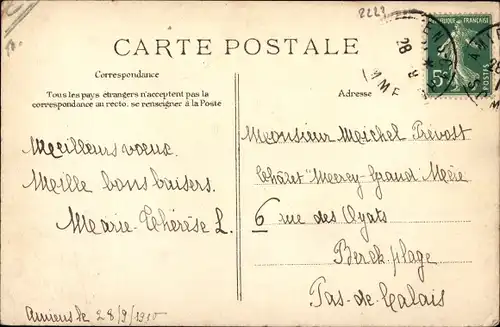 2223
CARTE POSTALE
Correspondance
Tous les pays étrangers n'acceptent pas la
correspondance au recto. se renseigner à la Poste
Adresse
Meilleurs vœux.
Meille bons baisers.
Marie-Thérèse L.
Amiens le 28/9/1910
5c
POSTES
Monsieur Meichel Prévost
Châlet "Merey-Grand-Mère
6 rue des Oyats
Berck-plage
Pas-de-Calais